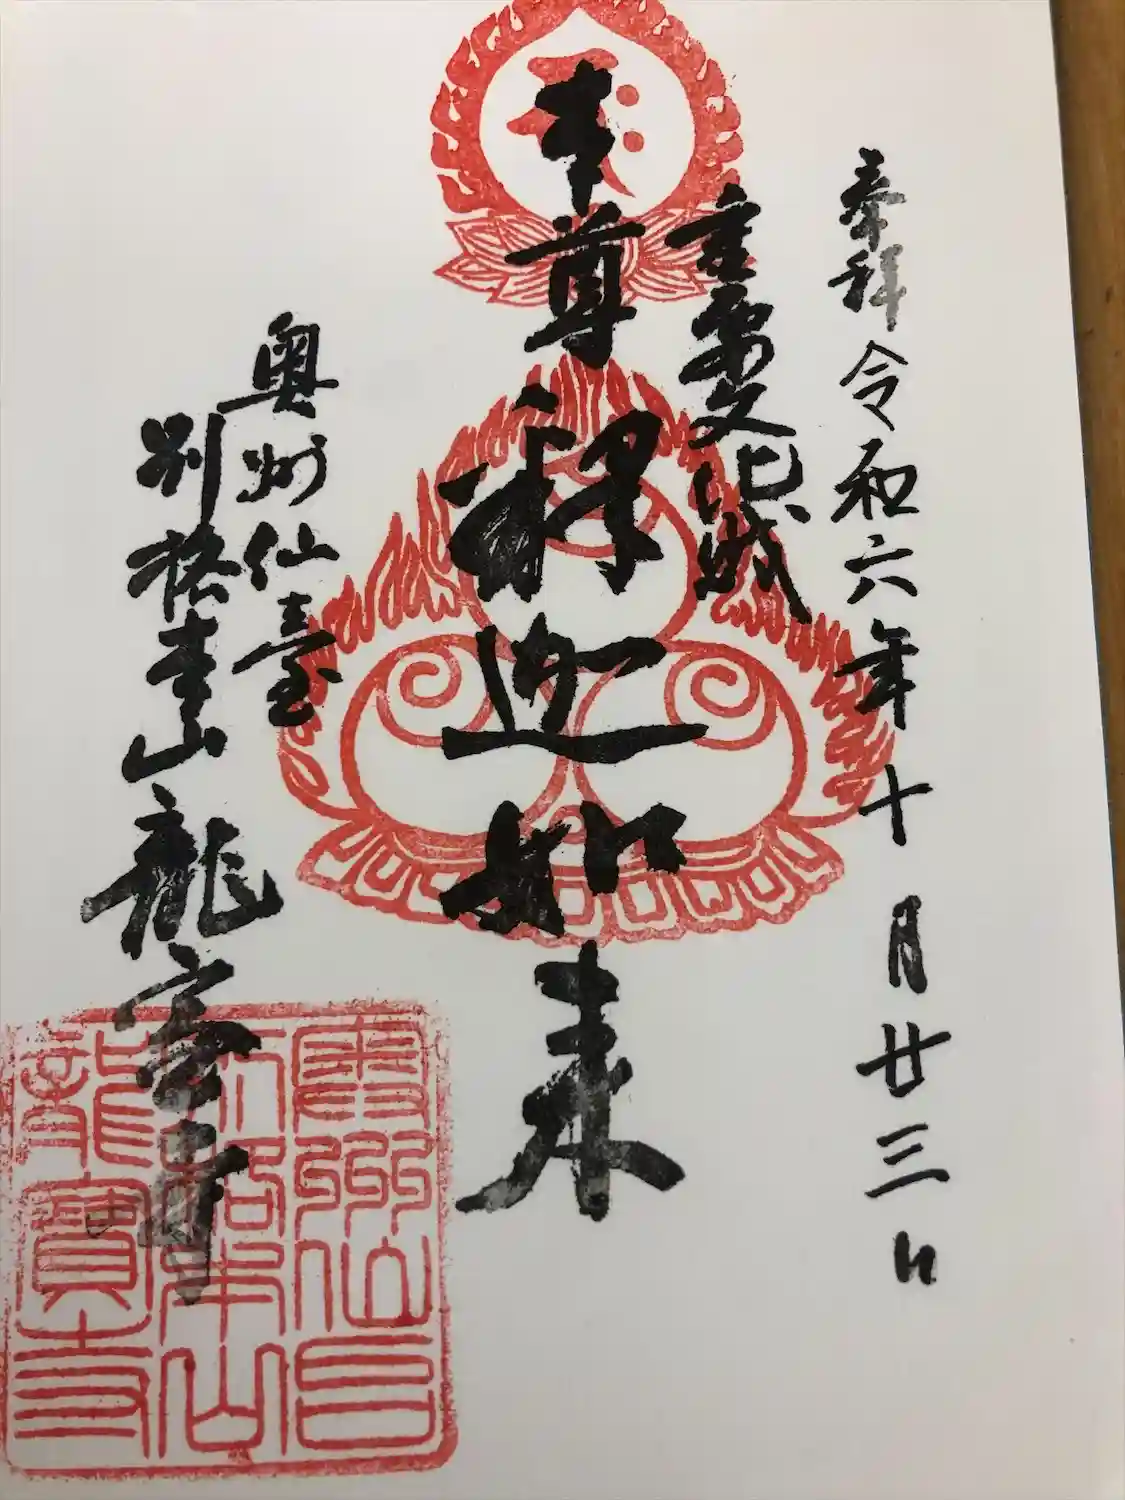 奉拝 令和六年十月廿三日
重要文化財
本尊 釈迦如来
奥州仙臺
別格本山 龍宝寺
奥州仙台
別格本山
龍寶寺